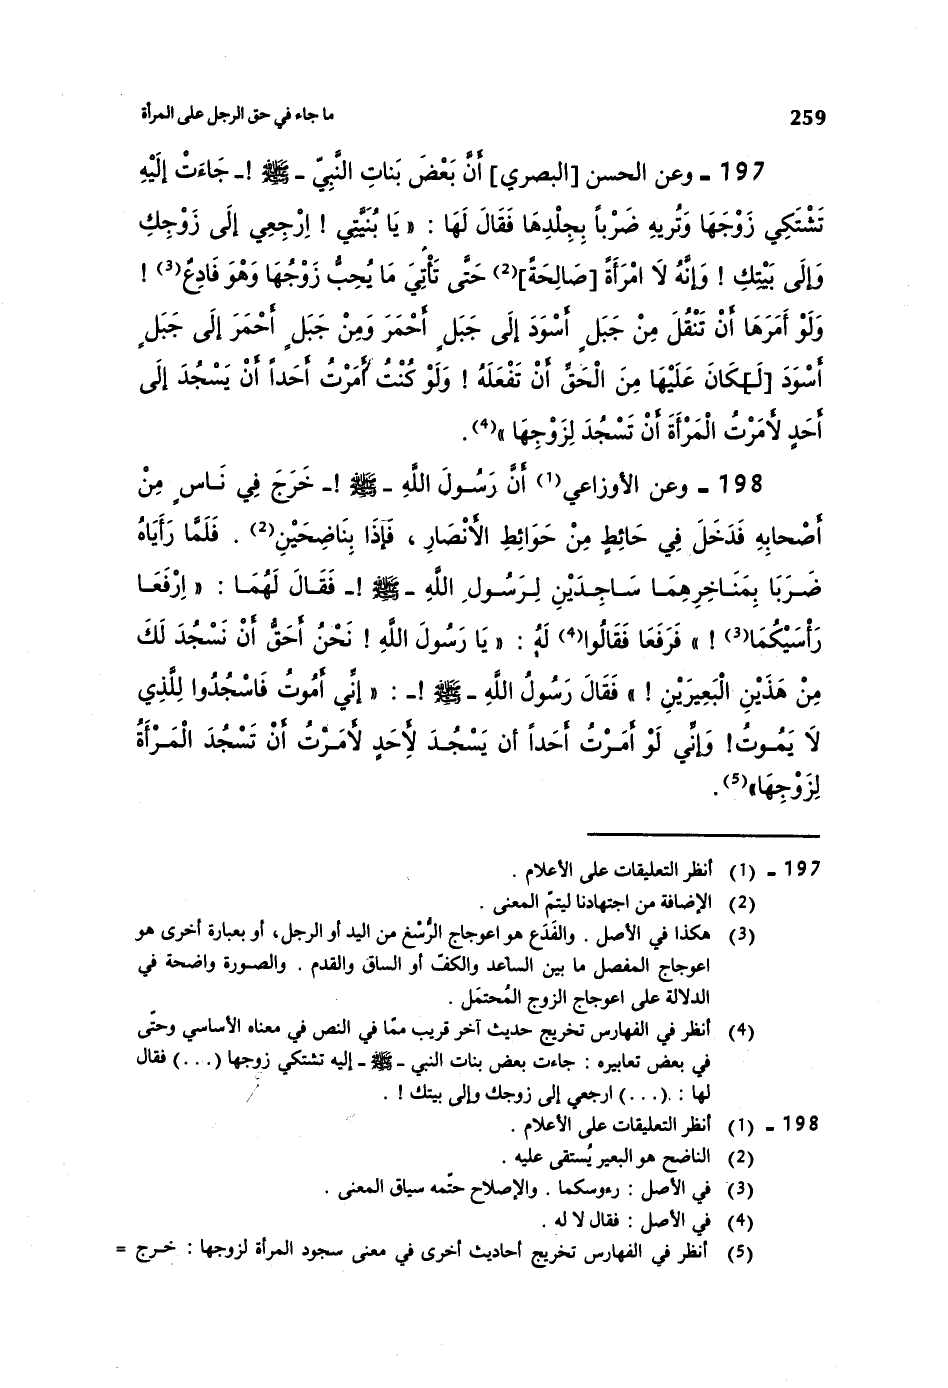 259 ما جاء في حق الرجل على المرأة
197 ـ وعن الحسن [البصري] أَنَّ بَعْضَ بَناتِ النَّبِيّ ـ ﷺ !ـ جَاءَتْ إِلَيْهِ
تَشْتَكِي زَوْجَهَا وَتُرِيهِ ضَرْباً بِجِلْدِهَا فَقَالَ لَهَا : « يَا بُنَيَّتِي ! اِرْجِعِي إِلَى زَوْجِكِ
وَإِلَى بَيْتِكِ ! وَإِنَّهُ لَا امْرَأَةً [صَالِحَةً](2) حَتَّى تَأْتِيَ مَا يُحِبُّ زَوْجُهَا وَهْوَ فَادِعٌ(3) !
وَلَوْ أَمَرَهَا أَنْ تَنْقُلَ مِنْ جَبَلٍ أَسْوَدَ إِلَى جَبَلٍ أَحْمَرَ وَمِنْ جَبَلٍ أَحْمَرَ إِلَى جَبَلٍ
أَسْوَدَ [لَـ]ـكَانَ عَلَيْهَا مِنَ الْحَقِّ أَنْ تَفْعَلَهُ ! وَلَوْ كُنْتُ أَمَرْتُ أَحَداً أَنْ يَسْجُدَ إِلَى
أَحَدٍ لأَمَرْتُ الْمَرْأَةَ أَنْ تَسْجُدَ لِزَوْجِهَا »(4).
198 ـ وعن الأوزاعي(1) أَنَّ رَسُولَ اللَّهِ ـ ﷺ !ـ خَرَجَ فِي نَاسٍ مِنْ
أَصْحابِهِ فَدَخَلَ فِي حَائِطٍ مِنْ حَوَائِطِ الأَنْصَارِ ، فَإِذَا بِنَاضِحَيْنِ(2) . فَلَمَّا رَأَيَاهُ
ضَرَبَا بِمَنَاخِرِهِمَا سَاجِدَيْنِ لِرَسُولِ اللَّهِ ـ ﷺ !ـ فَقَالَ لَهُمَا : « اِرْفَعَا
رَأْسَيْكُمَا(3) ! » فَرَفَعَا فَقَالُوا(4) لَهُ : « يَا رَسُولَ اللَّهِ ! نَحْنُ أَحَقُّ أَنْ نَسْجُدَ لَكَ
مِنْ هَذَيْنِ الْبَعِيرَيْنِ ! » فَقَالَ رَسُولُ اللَّهِ ـ ﷺ !ـ : « إِنِّي أَمُوتُ فَاسْجُدُوا لِلَّذِي
لَا يَمُوتُ! وَإِنِّي لَوْ أَمَرْتُ أَحَداً أن يَسْجُدَ لِأَحَدٍ لأَمَرْتُ أَنْ تَسْجُدَ الْمَرْأَةُ
لِزَوْجِهَا»(5).
197 ـ (1) أنظر التعليقات على الأعلام .
(2) الإضافة من اجتهادنا ليتمّ المعنى .
(3) هكذا في الأصل . والفَدَع هو اعوجاج الرُّسْغ من اليد أو الرجل، أو بعبارة أخرى هو
اعوجاج المفصل ما بين الساعد والكفّ أو الساق والقدم . والصورة واضحة في
الدلالة على اعوجاج الزوج المُحتمَل .
(4) أنظر في الفهارس تخريج حديث آخر قريب ممّا في النص في معناه الأساسي وحتّى
في بعض تعابيره : جاءت بعض بنات النبي ـ ﷺ ـ إليه تشتكي زوجها (...) فقال
لها : (...) ارجعي إلى زوجك وإلى بيتك ! .
198 ـ (1) أنظر التعليقات على الأعلام .
(2) الناضح هو البعير يُستقى عليه .
(3) في الأصل : رءوسكما . والإصلاح حتّمه سياق المعنى .
(4) في الأصل : فقال لا له .
(5) أنظر في الفهارس تخريج أحاديث أخرى في معنى سجود المرأة لزوجها : خرج =